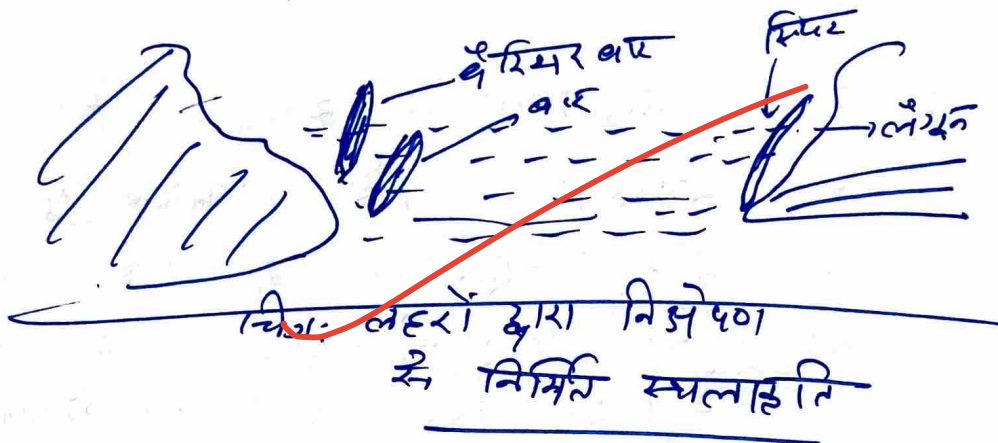 स्पिट
बैरियर बार
बार
लैगून
चित्र: लहरों द्वारा निक्षेपण
से निर्मित स्थलाकृति